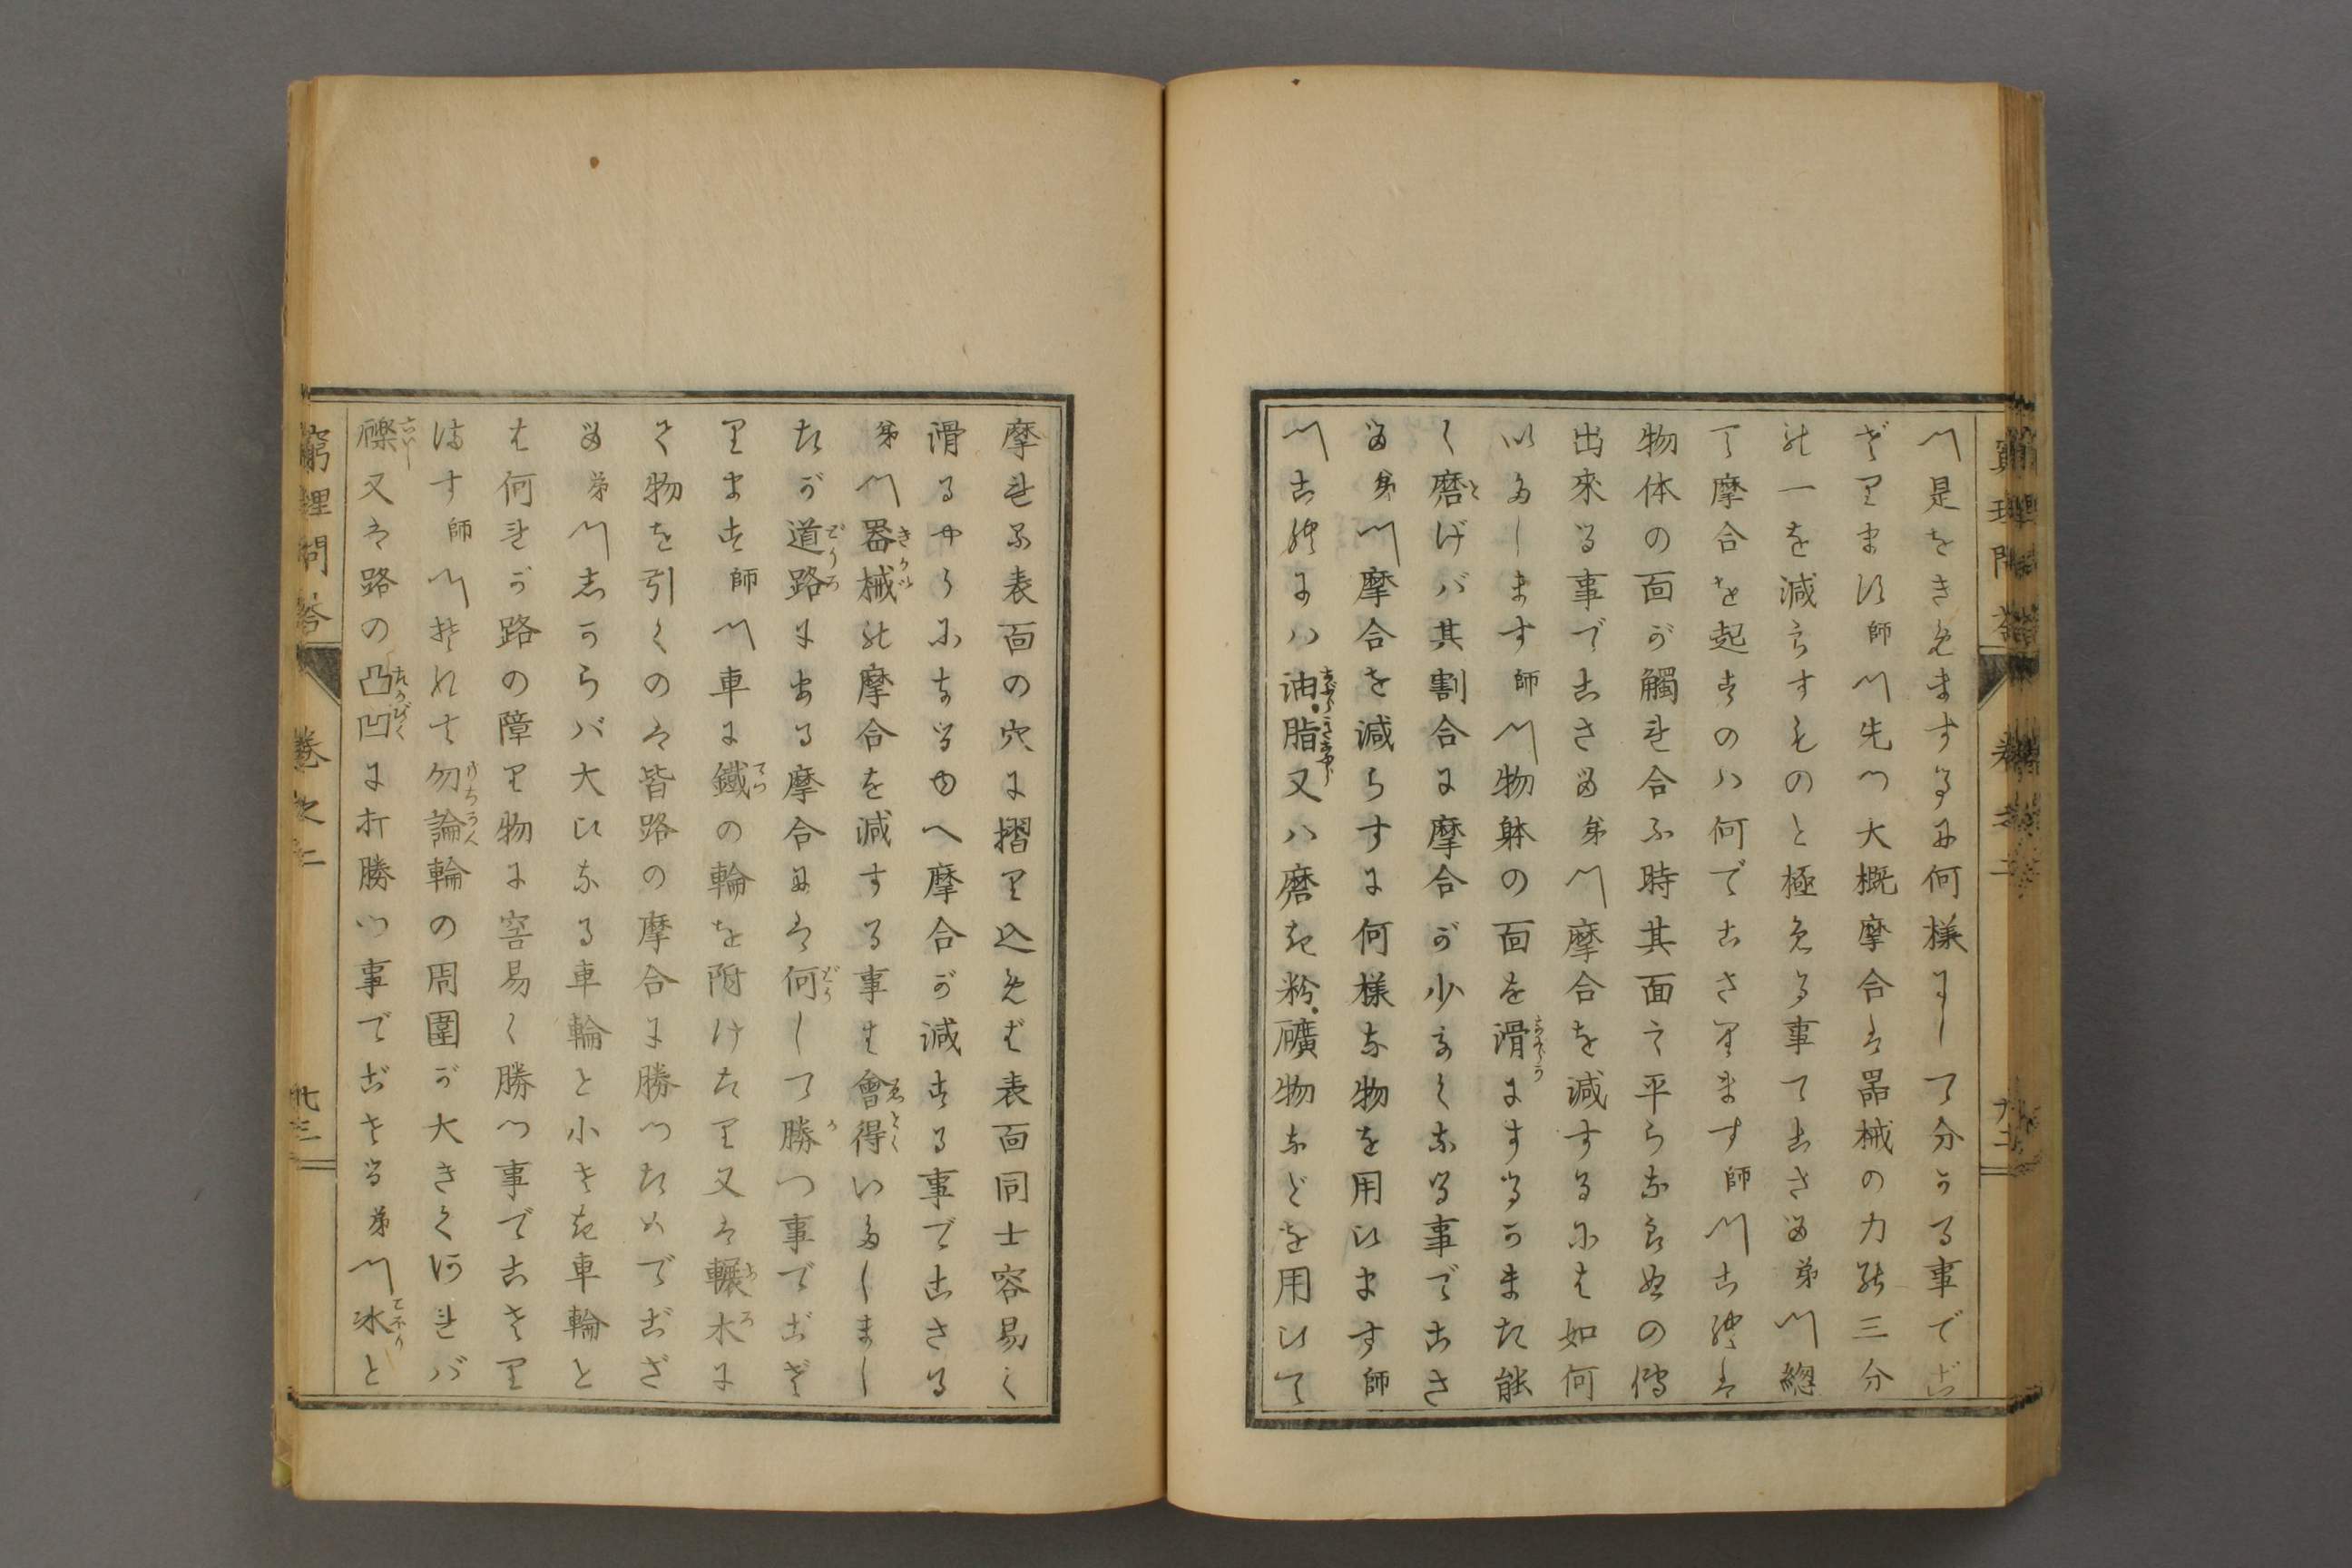 〽是をきめまするに何様にして分かる事でご
ざりますか師〽先つ大概摩合は器械の力能三分
の一を減らすものと極める事てござる弟〽總
て摩合を起すのハ何でござります師〽これは
物体の面が觸れ合ふ時其面で平らならぬの
出來る事でござる弟〽摩合を減するには如何
いたします師〽物躰の面を滑にするかまた能
く磨げバ其割合に摩合が少なくなる事でござ
る弟〽摩合を減らすに何様な物を用ひます師
〽これにハ油脂又ハ磨き粉礦物などを用ひて
摩れる表面の穴に摺り込めば表面同士容易く
滑るやうになるゆへ摩合が減する事でござる
弟〽器械の摩合を減する事は會得いたしまし
たが道路にある摩合には何して勝つ事でござ
ります師〽車に鐵の輪を附けたり又は輾木に
て物を引くのは皆路の摩合に勝つためでござ
る弟〽しからバ大ひなる車輪と小さき車輪と
は何れが路の障り物に容易く勝つ事でござり
ます師〽それは勿論輪の周圍が大きくなれバ
礫又は路の凸凹に打勝つ事でござる弟〽氷と
窮理問答 巻之二 九三